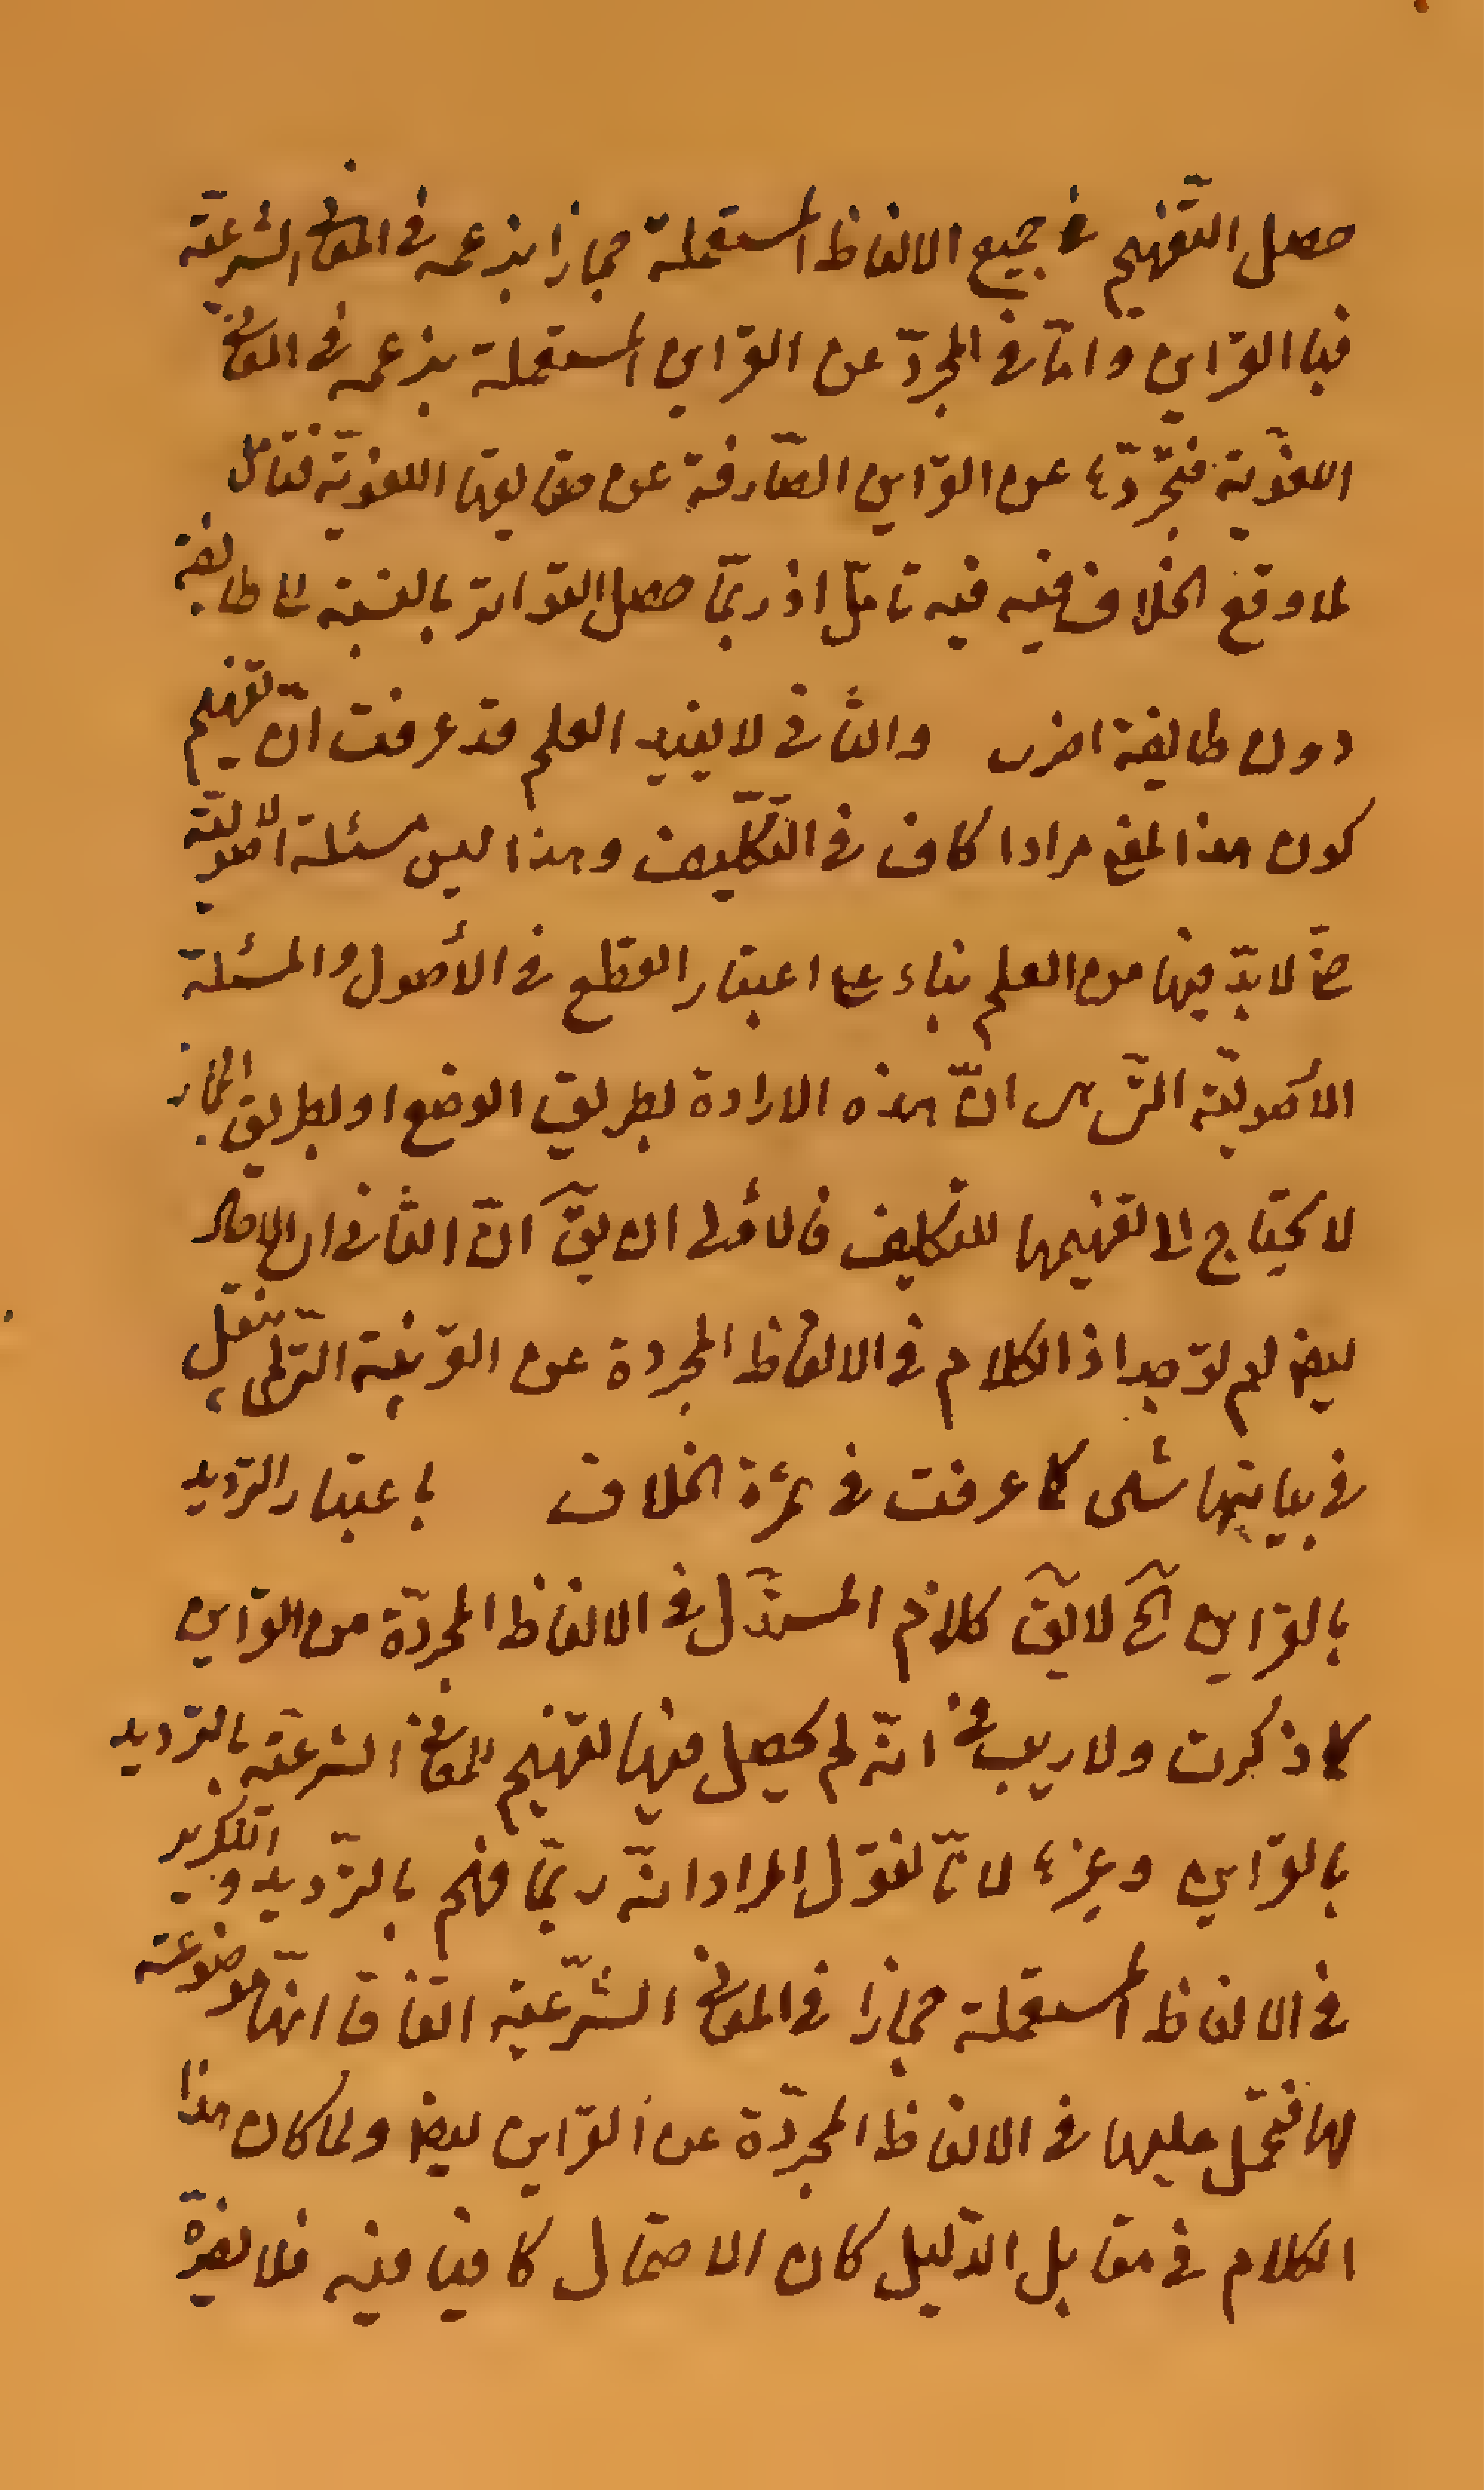 حصل التّفهيم في جميع الالفاظ المستعملة مجازا بزعمه في المعاني الشرعيّة
فبا القراين وامّا في المجرّد عن القراين المستعملة بزعمه في المعاني
اللغويّة فبتجرّدها عن القراين الصّارفة عن حقايقها اللغويّة فتامّل
لما وقع الخلاف فيه فيه تامّل اذ ربمّا حصل التواتر بالنسبة الى طايفة
دون طايفة اخرى والثاني لا يفيد العلم قد عرفت انّ تفهيم
كون هذا المعنى مرادا كاف في التّكليف وهذا ليس مسئلة الاصوليّة
حتّى لابدّ فيها من العلم بناء على اعتبار القطع في الأصول والمسئلة
الأصوليّة الّتي هي انّ هذه الارادة بطريق الوضع او بطريق المجاز
لا يحتاج الى تفهيمها للتكليف فالأولى ان يقّ انّ الثاني ان الاحاد
ايضا لم توجد اذ الكلام في الالفاظ المجردة عن القرينة الّتي لم ينقل
في بيانها شئ كما عرفت في ثمرة الخلاف باعتبار الترديد
بالقراين آلخ لا يقّ كلام المستدّل في الالفاظ المجردّة من القراين
كما ذكرت ولا ريب في انّه لم يحصل فيها تفهيم المعاني الشرعيّة بالترديد
بالقراين وغيرها لانّا نقول المراد انّه ربمّا فهم بالترّديد و التكرير
في الالفاظ المستعملة مجازا في المعاني الشرّعية اتفاقا انهّا موضوعة
لها فيحمل عليها في الالفاظ المجردّة عن القراين ايضا ولما كان هذا
الكلام في مقابل الدّليل كان الاحتمال كافيا فيه فلا يضرّه